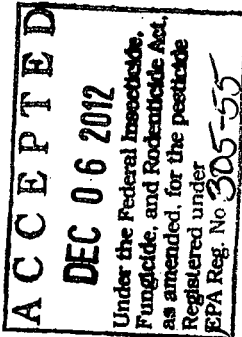 ACCEPTED
DEC 06 2012
Under the Federal Insecticide,
Fungicide, and Rodenticide Act,
as amended, for the pesticide
Registered under
EPA Reg. No 305-55